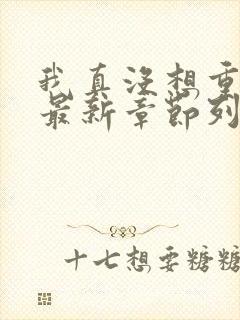 我真没想重
最新章节列
十七想要糖糖